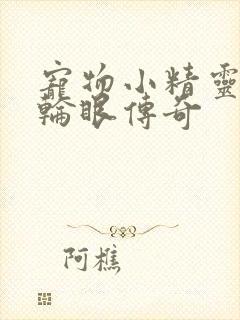 寵物小精靈
輪眼傳奇
阿樵